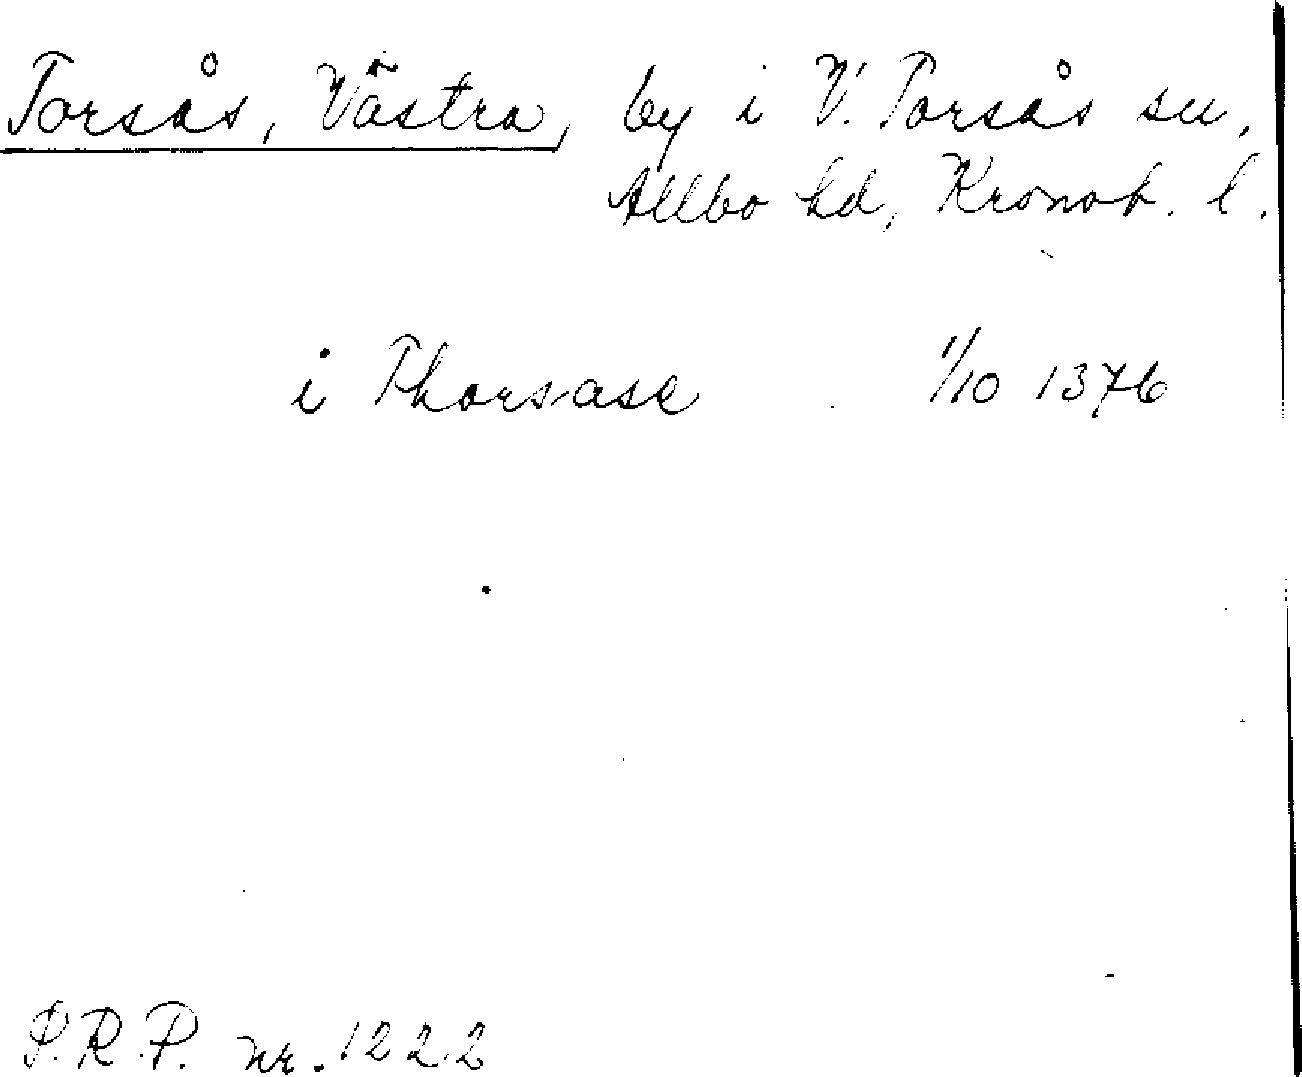 Torsås, Västra, by i V. Torsås sn,
Allbo hd, Kronob. l.
i Thorsase 1/10 1376
P.R.P. nr. 1222